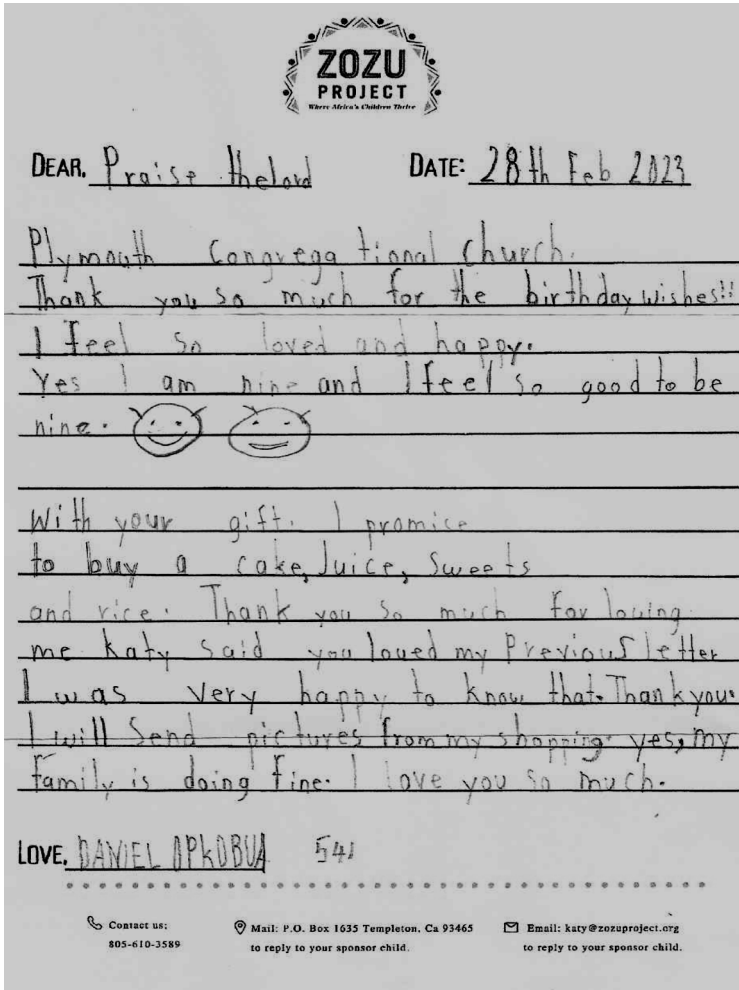 ZOZU
PROJECT
Where Africa's Children Thrive
DEAR, Praise thelord DATE: 28th Feb 2023
Plymouth Congregational Church.
Thank you so much for the birthday wishes!!
I feel so loved and happy.
Yes I am nine and I feel so good to be
nine.
With your gift. I promice
to buy a cake, Juice, Sweets
and rice. Thank you so much for loving
me Katy said you loved my Previous letter
I was very happy to know that. Thank you.
I will Send pictures from my shopping. yes, my
family is doing fine. I love you so much.
LOVE, DANIEL OPKOBUA 541
Contact us: Mail: P.O. Box 1635 Templeton, Ca 93465 Email: katy@zozuproject.org
805-610-3589 to reply to your sponsor child. to reply to your sponsor child.